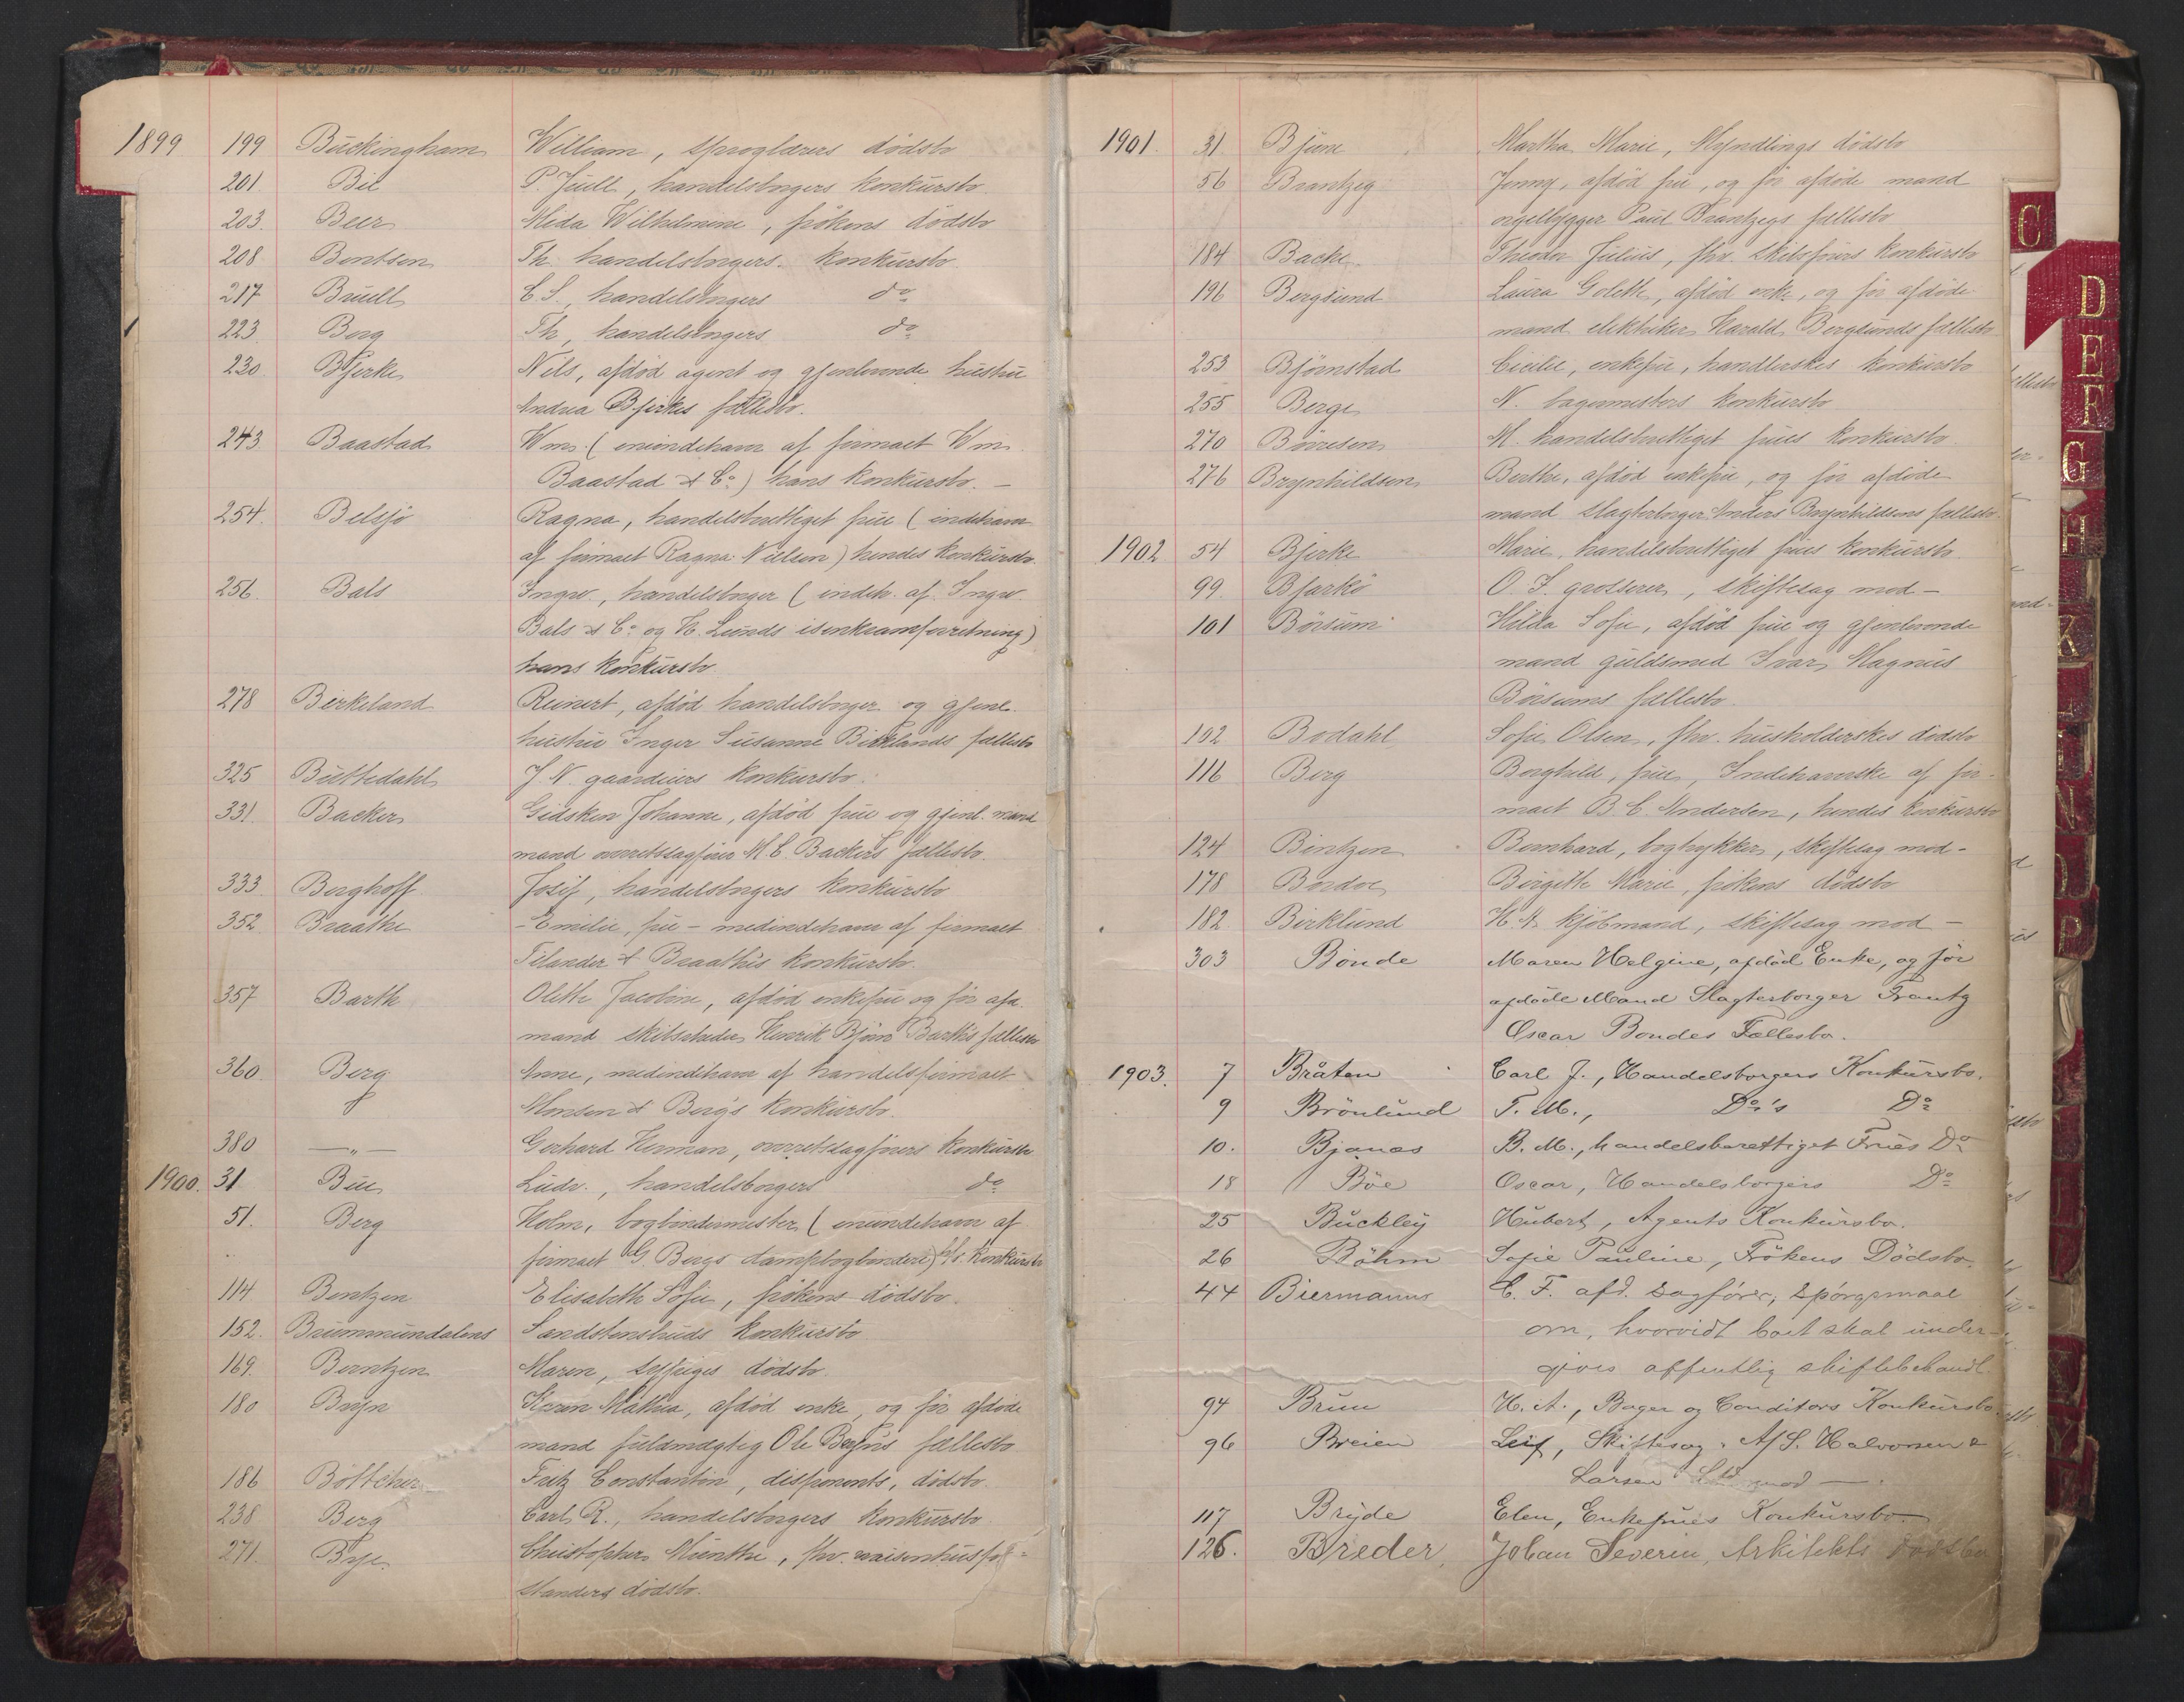 1899 199 Buckingham William, sproglærers dødsbo
201 Bil P. Juell, handelsbrgers konkursbo
203. Beer Meda Wilhelmine, frökens dödsbo
208 Bentsen Th. handelsbrgers. konkursbo
217 Bruell C. S., handelsbrgers do
223 Berg Th, handelsbrgers do
230. Bjerke Nils, afdød agent og gjenlevende hustru
Andrea Bjerkes fællesbo.
243. Baastad Wm. (eneindehaver af firmaet Wm.
Baastad & Co.) hans konkursbo. –
254. Belsjö Ragna, handelsberettiget frue (indehaver
af firmaet Ragna Nielsen) hendes konkursbo.
256. Bals Ingv., handelsbrger (indeh. af Ingv.
Bals & Co. og H. Lunds isenkramforretning)
hans konkursbo.
278 Birkeland Reinert, afdød handelsborger og gjenl.
hustru Inger Susanne Birklands fællesbo
325 Buttedahl J. N. gaardeiers konkursbo.
331. Backer Gidsken Johanne, afdød frue og gjenl. mand
mand overretssagfører M. C. Backers fællesbo.
333. Berghoff Josif, handelsbrgers konkursbo
352 Braathe – Emilie, frue – medindehaver af firmaet
Tilander & Braathes konkursbo.
357 Barth Olette Jacobine, afdød enkefrue og før afd.
mand skibsreder Henrik Bjørn Barths fællesbo
360. Berg Anne, medindehaver af handelsfirmaet
Monsen & Bergs konkursbo.
380 —„— Gerhard Herman, overretssagførers konkursbo
1900. 31 Bue Ludv., handelsborgers do
51. Berg Holm, bogbindermester (eneindehaver af
firmaet G. Bergs dampbogbinderi) h/s. konkursbo
114 Bentzen Elisabeth Sofie, frökens dødsbo.
152. Brummundalens Sandstensbruds konkursbo
169. Berntzen Maren, sypiges dødsbo.
180 Bryn Karen Mathea, afdød enke, og før afdøde
mand fuldmægtig Ole Bryns fællesbo
186 Böttcher Fritz Constantin, disponents, dødsbo.
238 Berg Carl R., handelsbrgers konkursbo
271. Bye. Christopher Münthe, fhv. waisenhusfor-
standers dødsbo.
1901. 31 Bjune Martha Marie, Myndlings dödsbo
56 Brantzeg Jenny, afdød frue, og før afdøde mand
orgelbygger Paul Brantzegs fællesbo
184 Backe Theodor Julius, fhv. skibsførers konkursbo
196 Bergsund Laura Golette, afdød enke, og før afdøde
mand elektriker Harald Bergsunds fællesbo
253 Bjørnstad Cicilie, enkefrue, handlerskes konkursbo
255 Berge N. bagermesters konkursbo
270 Børresen M. handelsberettiget frues konkursbo
276 Brynhildsen Berthe, afdød enkefrue, og før afdøde
mand slagterborger Anders Brynhildsens fællesbo.
1902 54 Bjerke Marie, handelsberettiget frues konkursbo.
99. Bjarkö O. S. grosserer, skiftesag mod –
101 Börsum Hilda Sofie, afdød frue og gjenlevende
mand guldsmed Ivar Magnus
Börsums fællesbo.
102 Bodahl Sofie Olsen, fhv. husholderskes dødsbo
116 Berg Borghild, frue, Indehaverske af fir-
maet B. C. Andersen, hendes konkursbo
124 Bintzen Bernhard, bogtrykker, skiftesag mod –
178 Bordoe Birgitte Marie, frökens dødsbo
182. Birklund H. N. kjöbmand, skiftesag mod –
303 Bonde Maren Helgine, afdöd Enke, og för
afdöde Mand Slagterborger Frantz
Oscar Bondes Fællesbo.
1903. 7 Bråten Carl J., Handelsborgers Konkursbo.
9 Brönlund T. M., Do's Do
10. Bjanæs B. M., handelsberettiget Frues Do
18 Böe Oscar, Handelsborgers Do
25 Buckley Hubert, Agents Konkursbo.
26 Böhm Sofie Pauline, Frökens Dödsbo.
44 Biermanns C. F. afd. Sagfører, Spörgsmaal
om, hvorvidt boet skal under-
gives offentlig skiftebehandl.
94 Bruun H. A., Bager og Conditors Konkursbo.
96 Breien Leif, Skiftesag. A/S. Halvorsen &
Larsen Ltd mod — .
117 Bryde Elen, Enkefrues Konkursbo
126. Breder, Johan Severin, Arkitekts Dödsbo
C
D
E
F
G
H
K
L
N
O
P